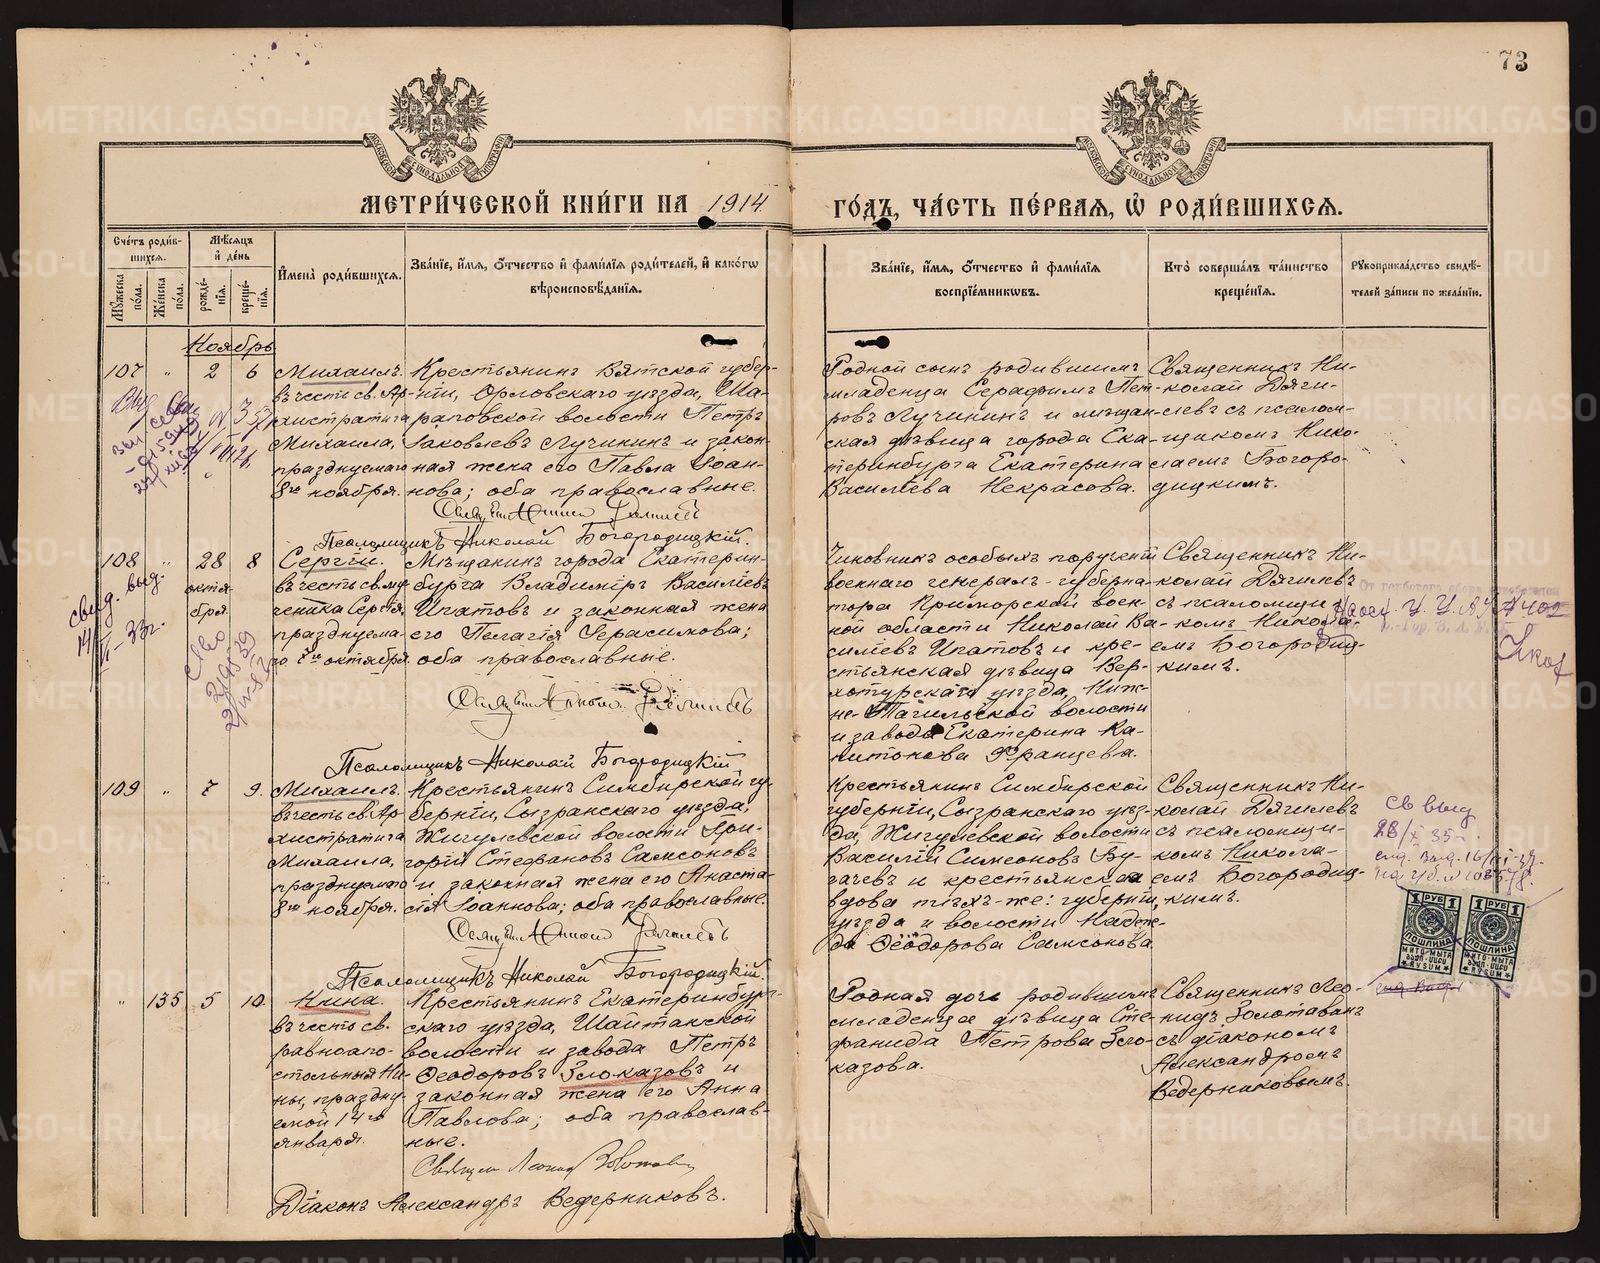 73
МЕТРИ́ЧЕСКОЙ КНИ́ГИ НА 1914
ГО́ДЪ, ЧА́СТЬ ПЕ́РВАѦ, Ѡ҆ РОДИ́ВШИХСѦ.
Сче́тъ роди́в-
шихсѧ.
Мѣ́сѧцъ
и҆ де́нь
Мꙋ́жеска
по́ла.
Же́нска
по́ла.
рожде́-
нїѧ.
креще́-
нїѧ.
И҆мена̀ роди́вшихсѧ.
Зва́нїе, и҆́мѧ, ѻ҆́тчество и҆ фами́лїѧ роди́телей, и҆ како́гѡ
вѣроисповѣ́данїѧ.
Зва́нїе, и҆́мѧ, ѻ҆́тчество и҆ фами́лїѧ
воспрїе́мникѡвъ.
Кто̀ соверша́лъ та́инство
креще́нїѧ.
Рꙋкоприкла́дство свидѣ́-
телей за́писи по жела́нїю.
Ноябрь
107 " 2 6
Михаилъ.
въ честь св. Ар-
хистратига
Михаила,
празднуемаго
8го ноября.
Крестьянинъ Вятской губер-
ніи, Орловскаго уѣзда, Ша-
раповской волости Петръ
Іаковлевъ Лучининъ и закон-
ная жена его Павла Іоан-
нова; оба православные.
Родной сынъ родившимъ
младенца Серафимъ Пет-
ровъ Лучининъ и мѣщан-
ская дѣвица города Ека-
теринбурга Екатерина
Василіева Некрасова.
Священникъ Ни-
колай Дягилевъ
съ псалом-
щикомъ Нико-
лаемъ Богоро-
дицкимъ.
Псаломщикъ Николай Богородицкій.
108 " 28 8
октя-
бря.
Сергій.
въ честь св. му-
ченика Сергія
празднуема-
го 7го октября.
Мѣщанинъ города Екатерин-
бурга Владиміръ Василіевъ
Ипатовъ и законная жена
его Пелагія Герасимова;
оба православные.
Чиновникъ особыхъ порученій
военнаго генералъ-губерна-
тора Приморской воен-
ной области Николай Ва-
силіевъ Ипатовъ и кре-
стьянская дѣвица Вер-
хотурскаго уѣзда, Ниж-
не-Тагильской волости
и завода Екатерина Ка-
питонова Францева.
Священникъ Ни-
колай Дягилевъ
съ псаломщи-
комъ Никола-
емъ Богородиц-
кимъ.
Псаломщикъ Николай Богородицкій
109 " 7 9.
Михаилъ.
въ честь св. Ар-
хистратига
Михаила,
празднуемаго
8го ноября.
Крестьянинъ Симбирской гу-
берніи, Сызранскаго уѣзда,
Жигулевской волости Гри-
горій Стефановъ Самсоновъ
и законная жена его Анаста-
сія Іоаннова; оба православные.
Крестьянинъ Симбирской
губерніи, Сызранскаго уѣз-
да, Жигулевской волости
Василій Симеоновъ Бу-
гачевъ и крестьянская
вдова тѣхъ-же: губерніи,
уѣзда и волости Надеж-
да Ѳеодорова Самсонова.
Священникъ Ни-
колай Дягилевъ
съ псаломщи-
комъ Никола-
емъ Богородиц-
кимъ.
св выд
28/X 35
1 РУБ 1
ПОШЛИНА
1 РУБ 1
ПОШЛИНА
Псаломщикъ Николай Богородицкій.
" 135 5 10.
Нина.
въ честь св.
равноапо-
стольныя Ни-
ны, праздну-
емой 14го
января.
Крестьянинъ Екатеринбург-
скаго уѣзда, Шайтанской
волости и завода Петръ
Ѳеодоровъ Злоказовъ и
законная жена его Анна
Павлова; оба православ-
ные.
Родная дочь родившимъ
младенца дѣвица Сте-
фанида Петрова Зло-
казова.
Священникъ Лео-
нидъ Золотавинъ
съ діакономъ
Александромъ
Ведерниковымъ.
Діаконъ Александръ Ведерниковъ.
METRIKI.GASO-URAL.RU